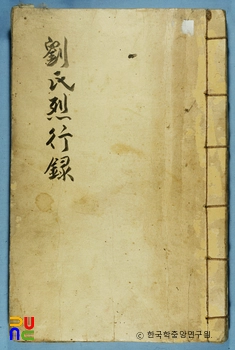 劉氏烈行錄
ⓒ 한국학중앙연구원